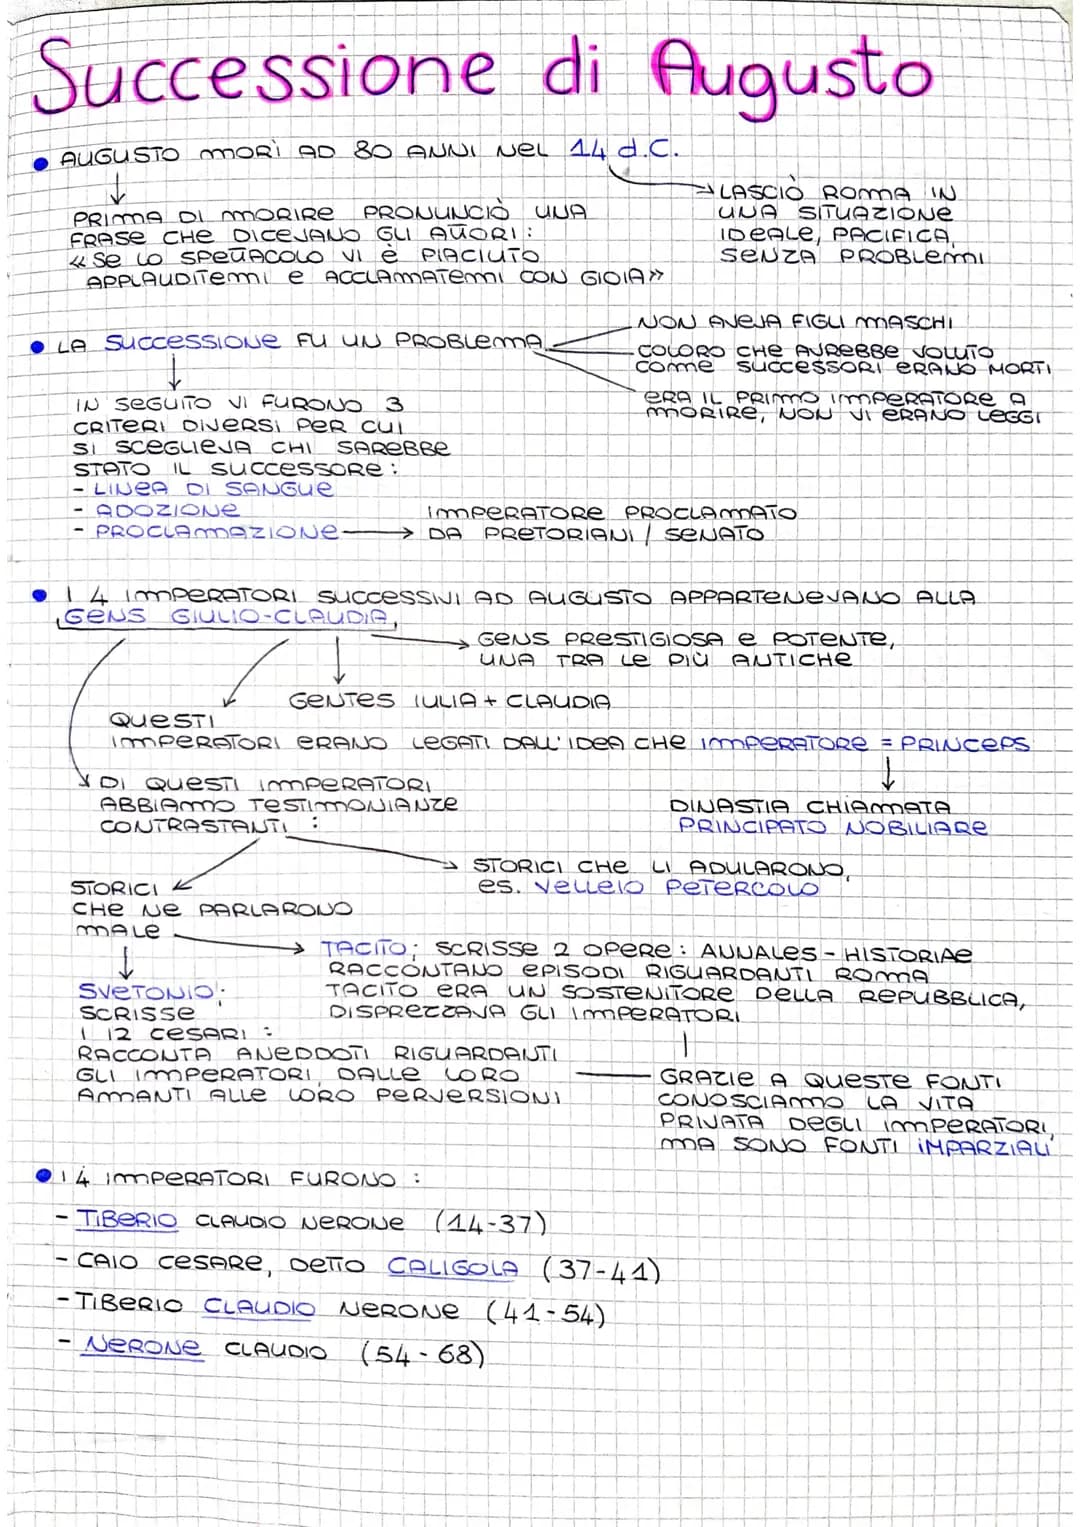 Successione di Augusto
• AUGUSTO MORÌ AD 80 ANNI NEL 14 d.C.
LASCIÒ ROMA IN
UNA SITUAZIONE
IDEALE, PACIFICA,
SENZA PROBLEMI
PRIMA DI MORIRE PRONUNCIÒ UNA
FRASE CHE DICEVANO GLI ATTORI:
«SE LO SPETTACOLO VI È PIACIUTO
APPLAUDITEMI E ACCLAMATEMI CON GIOIA»
• LA SUCCESSIONE FU UN PROBLEMA
NON AVEVA FIGLI MASCHI
COLORO CHE AVREBBE VOLUTO
COME SUCCESSORI ERANO MORTI
ERA IL PRIMO IMPERATORE A
MORIRE, NON VI ERANO LEGGI
IN SEGUITO VI FURONO 3
CRITERI DIVERSI PER CUI
SI SCEGLIEVA CHI SAREBBE
STATO IL SUCCESSORE:
- LINEA DI SANGUE
- ADOZIONE
- PROCLAMAZIONE → IMPERATORE PROCLAMATO
DA PRETORIANI / SENATO
• I 4 IMPERATORI SUCCESSIVI AD AUGUSTO APPARTENEVANO ALLA
GENS GIULIO-CLAUDIA,
GENS PRESTIGIOSA E POTENTE,
UNA TRA LE PIÙ ANTICHE
GENTES IULIA + CLAUDIA
QUESTI
IMPERATORI ERANO LEGATI DALL'IDEA CHE IMPERATORE = PRINCEPS
DINASTIA CHIAMATA
PRINCIPATO NOBILIARE
DI QUESTI IMPERATORI
ABBIAMO TESTIMONIANZE
CONTRASTANTI:
STORICI CHE LI ADULARONO,
es. VELLEIO PETERCOLO
STORICI
CHE NE PARLARONO
MALE
TACITO; SCRISSE 2 OPERE: ANNALES - HISTORIAE
RACCONTANO EPISODI RIGUARDANTI ROMA
TACITO ERA UN SOSTENITORE DELLA REPUBBLICA,
DISPREZZAVA GLI IMPERATORI
SVETONIO;
SCRISSE
I 12 CESARI:
RACCONTA ANEDDOTI RIGUARDANTI
GLI IMPERATORI, DALLE LORO
AMANTI ALLE LORO PERVERSIONI
GRAZIE A QUESTE FONTI
CONOSCIAMO LA VITA
PRIVATA DEGLI IMPERATORI,
MA SONO FONTI IMPARZIALI
• I 4 IMPERATORI FURONO:
- TIBERIO CLAUDIO NERONE (14-37)
- CAIO CESARE, DETTO CALIGOLA (37-41)
- TIBERIO CLAUDIO NERONE (41-54)
- NERONE CLAUDIO (54-68)